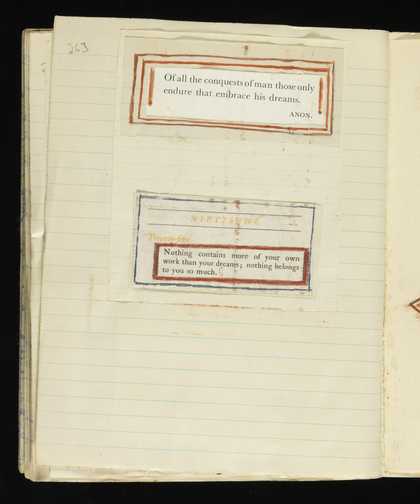 263
Of all the conquests of man those only
endure that embrace his dreams.
ANON.
NIETZSCHE
Nothing contains more of your own
work than your dreams; nothing belongs
to you so much.